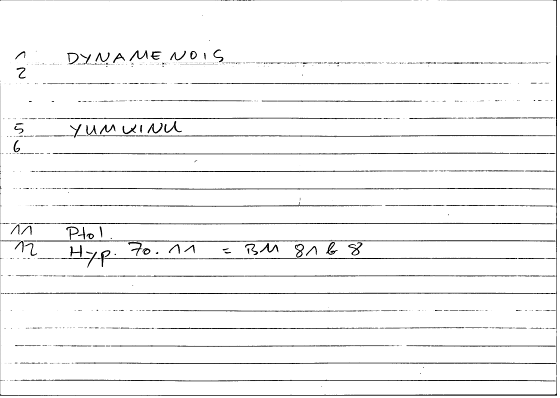 1 DYNAMENOIS
2
5 YUMUINU
6
11 Ptol.
12 Hyp. 70. 11 = BM 81 b 8